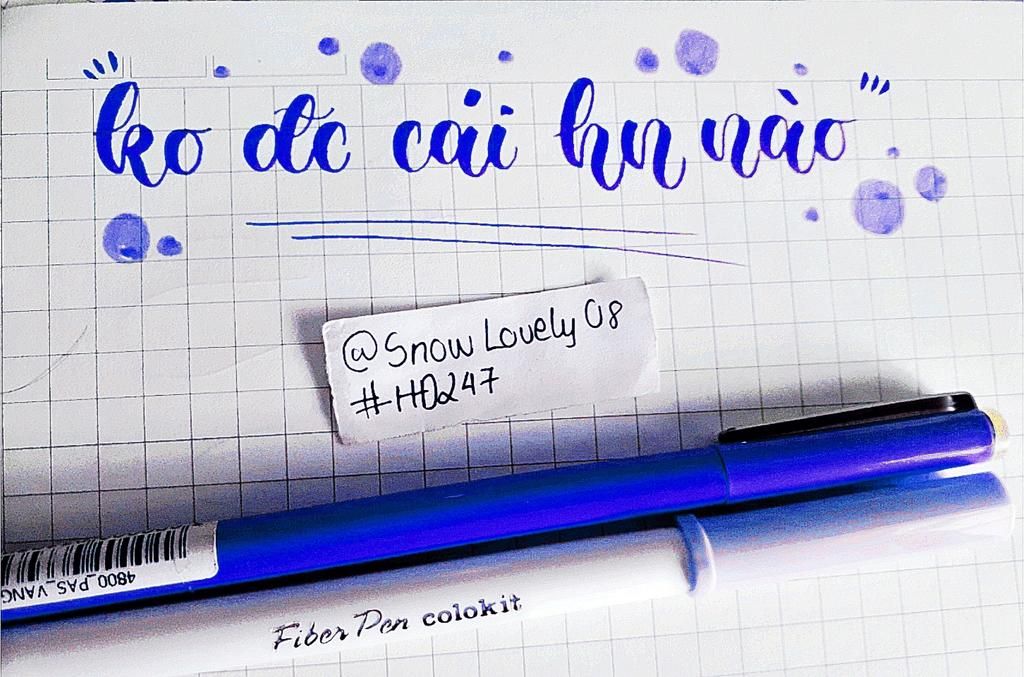 "ko đc cái hn nào".
@Snow Lovely 08
#HD247
4800_PAS_VANG
Fiber Pen colokit